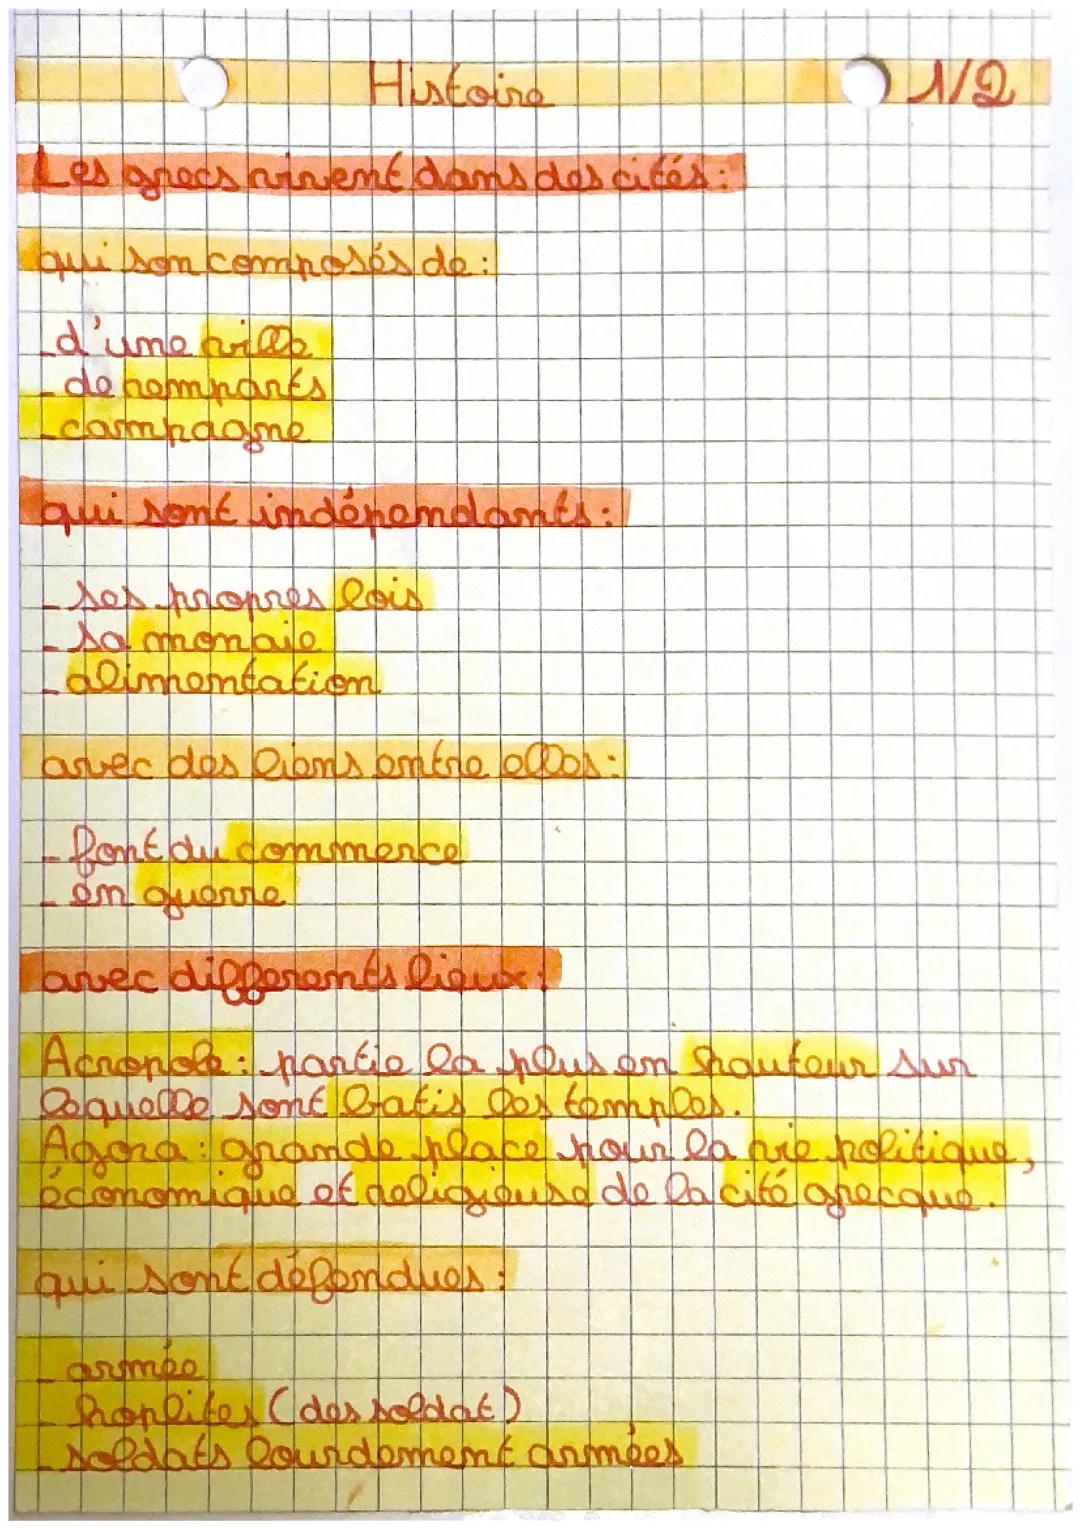 Histoire 1/2
Les grecs vivent dans des cités :
qui son composés de :
- d'une ville
- de remparts
- campagne
qui sont indépendants :
- ses propres lois
- sa monaie
- alimentation
avec des liens entre elles :
- font du commerce
- en guerre
avec differents lieux :
Acropole : partie la plus en hauteur sur
laquelle sont batis les temples.
Agora : grande place pour la vie politique,
économique et religieuse de la cité grecque.
qui sont défendues :
- armée
- hoplites (des soldat)
- soldats lourdement armées